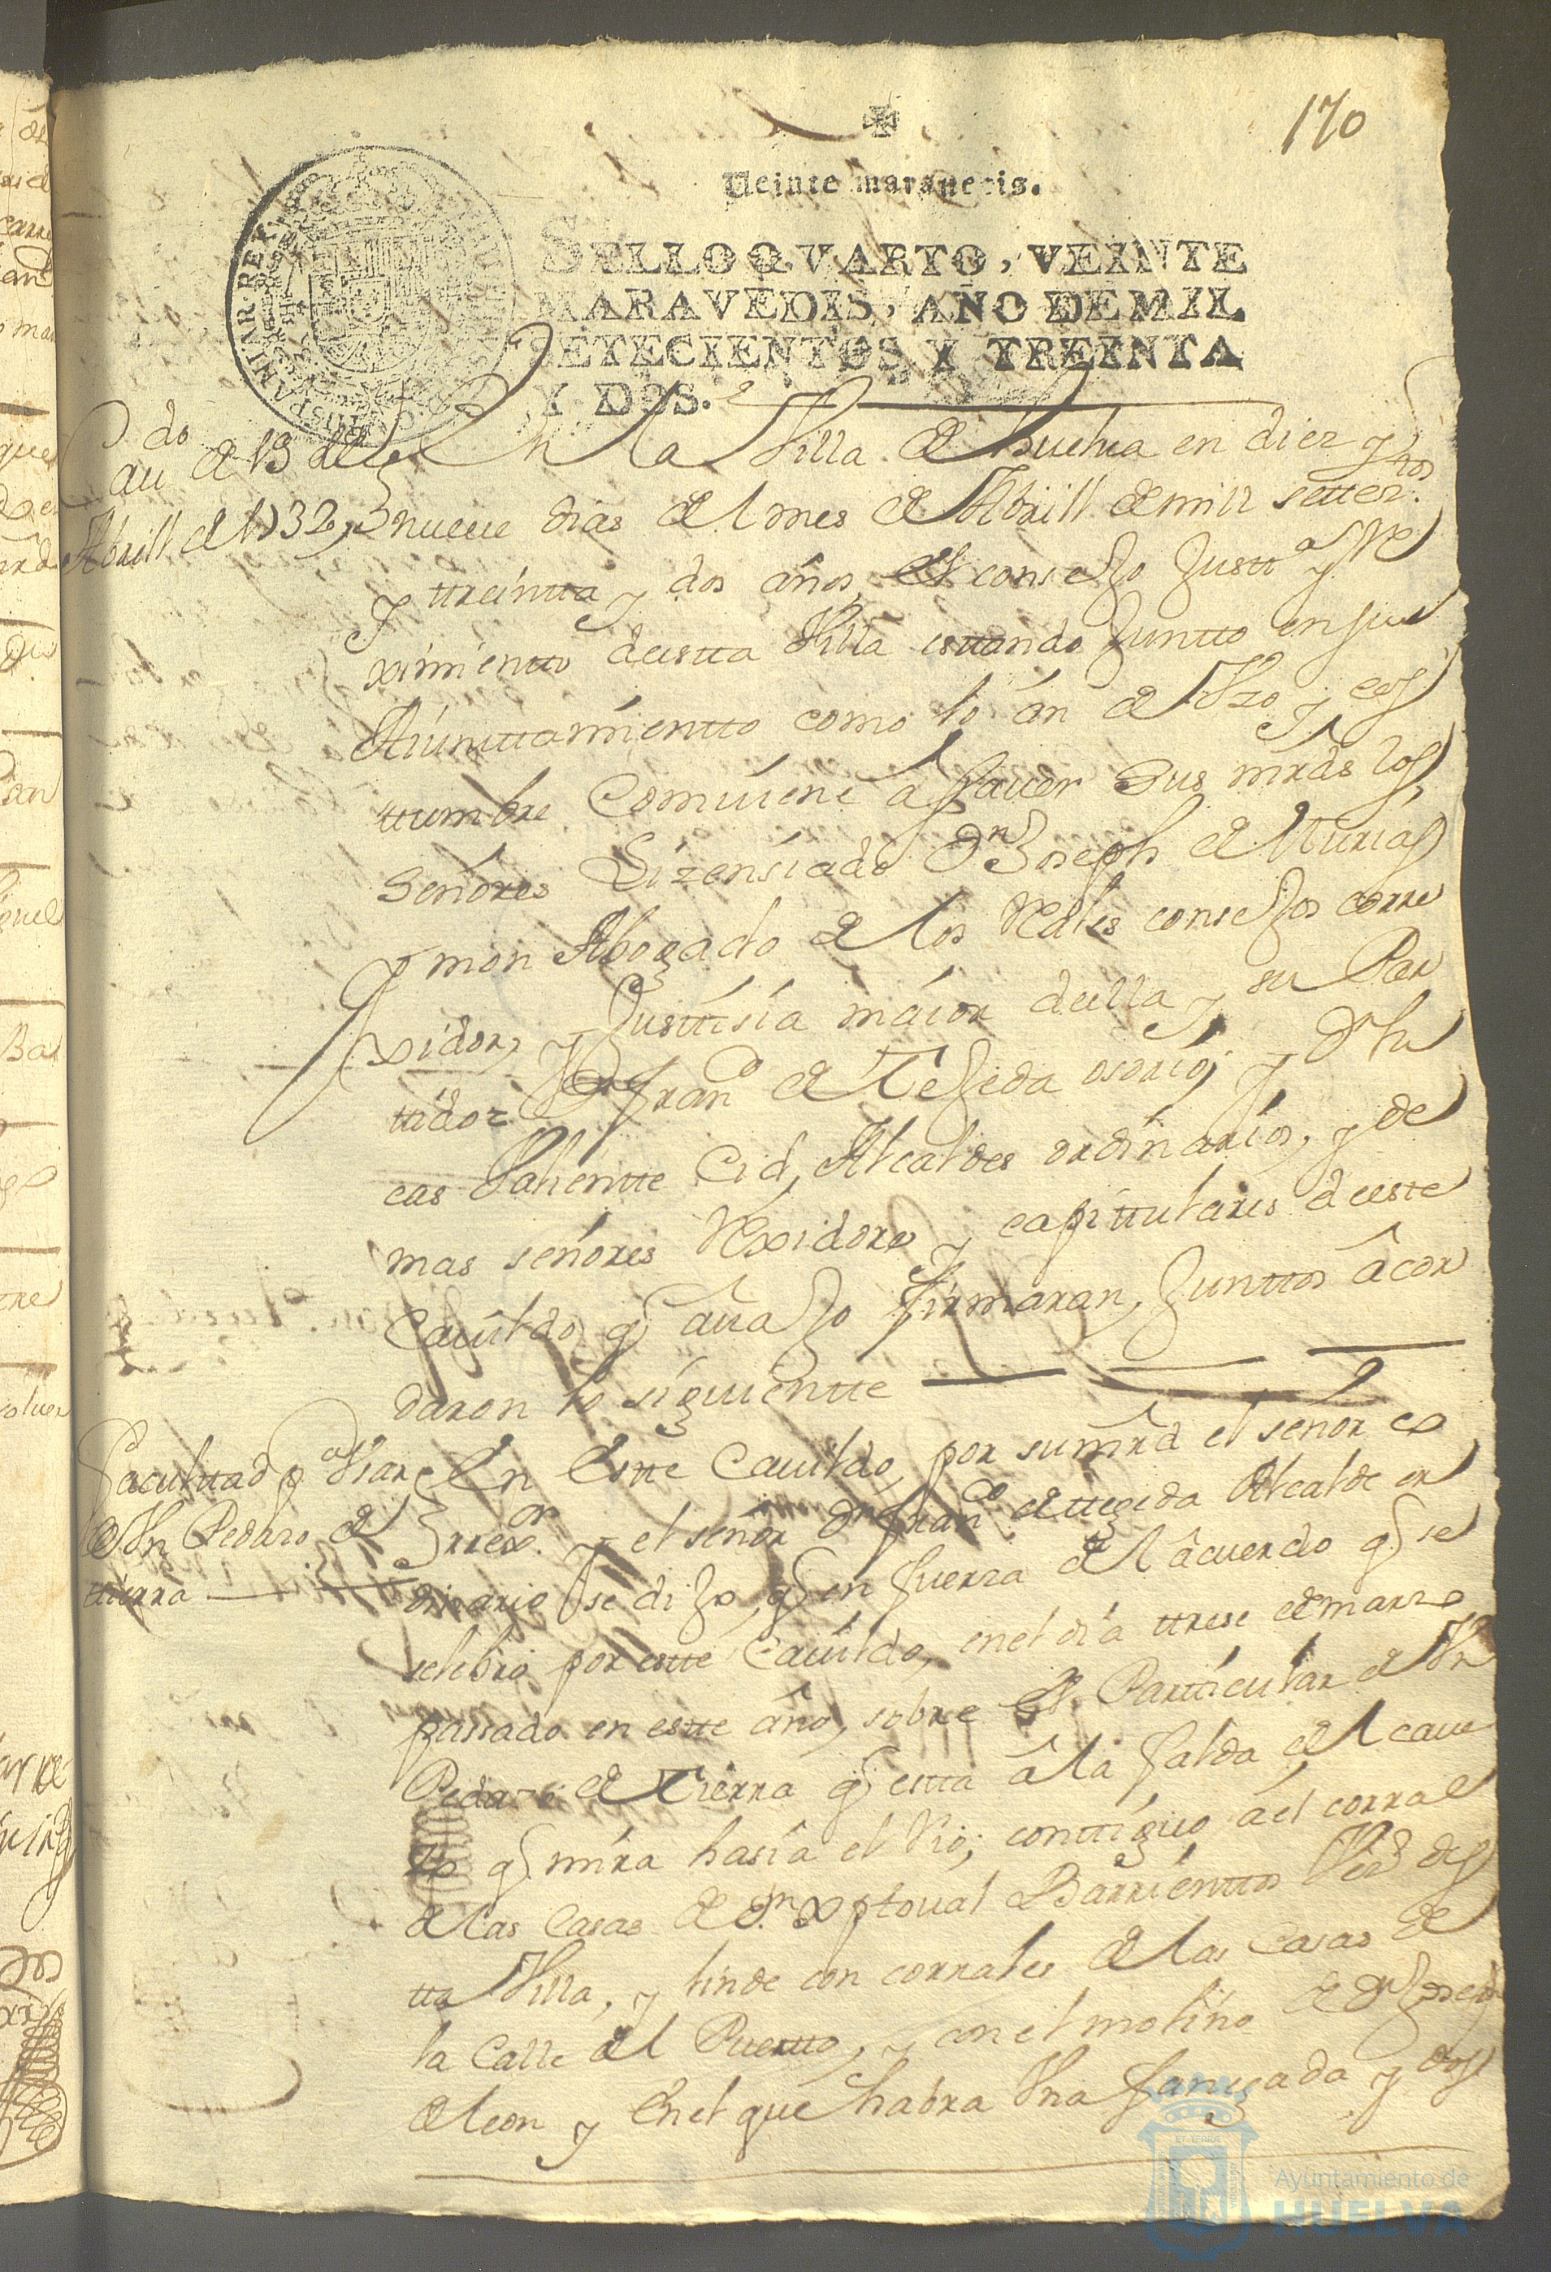 170
Veinte maravedis.
SELLO QVARTO, VEINTE
MARAVEDIS, AÑO DE MIL
SETECIENTOS Y TREINTA
Y DOS.
HISPANIAR. REX
Cau.do de 19 de
Abrill de 1732
En la Villa de huelua en diez y
nueue dias del mes de Abrill de mill settez.tos
y ttreintta y dos años, el consejo Justt.a y Re
ximientto deestta Villa esttando Juntto en su
Aiunttamientto como lo án de Vzo y cos
ttumbre Comuiene á sauer Sus mrds los
Señores Lizensiado Dn Joseph de Murias
mon Abogado de los Reales consejos corre
xidor, y Justtisia máior deella y su Par
tido Dn Fran.co de Tejeda osorio, y Dn lu
cas Valientte Cid, Alcaldes ordinarios, y de
mas señores Rexidores y capittulares deeste
Cauildo q auajo firmaran, Junttos âcor
daron lo siguientte
Facultad p.a
Vn Pedaso de
ttierra
En Estte Cauildo por su mrd el señor co
rrex.or y el señor Dn Fran.co de ttegeda Alcalde or
dinario se dijo, q en fuerza del âcuerdo q se
selebró por estte Cauildo, en el dia ttrese de marzo
passado en estte año, sobre el Partticular de Vn
Pedaso de Tierra q estta â la falda del caue
zo q mira hasia el Rio, conttiguo á el corral
de las Casas de Dn Xptoual Barrienttos Vez.o des
tta Villa, y linde con corrales de las Casas de
la Calle del Puertto, y con el molino de Dn Joseph
de leon y En el que habra Vna fanegada y dos
Ayuntamiento de
HUELVA